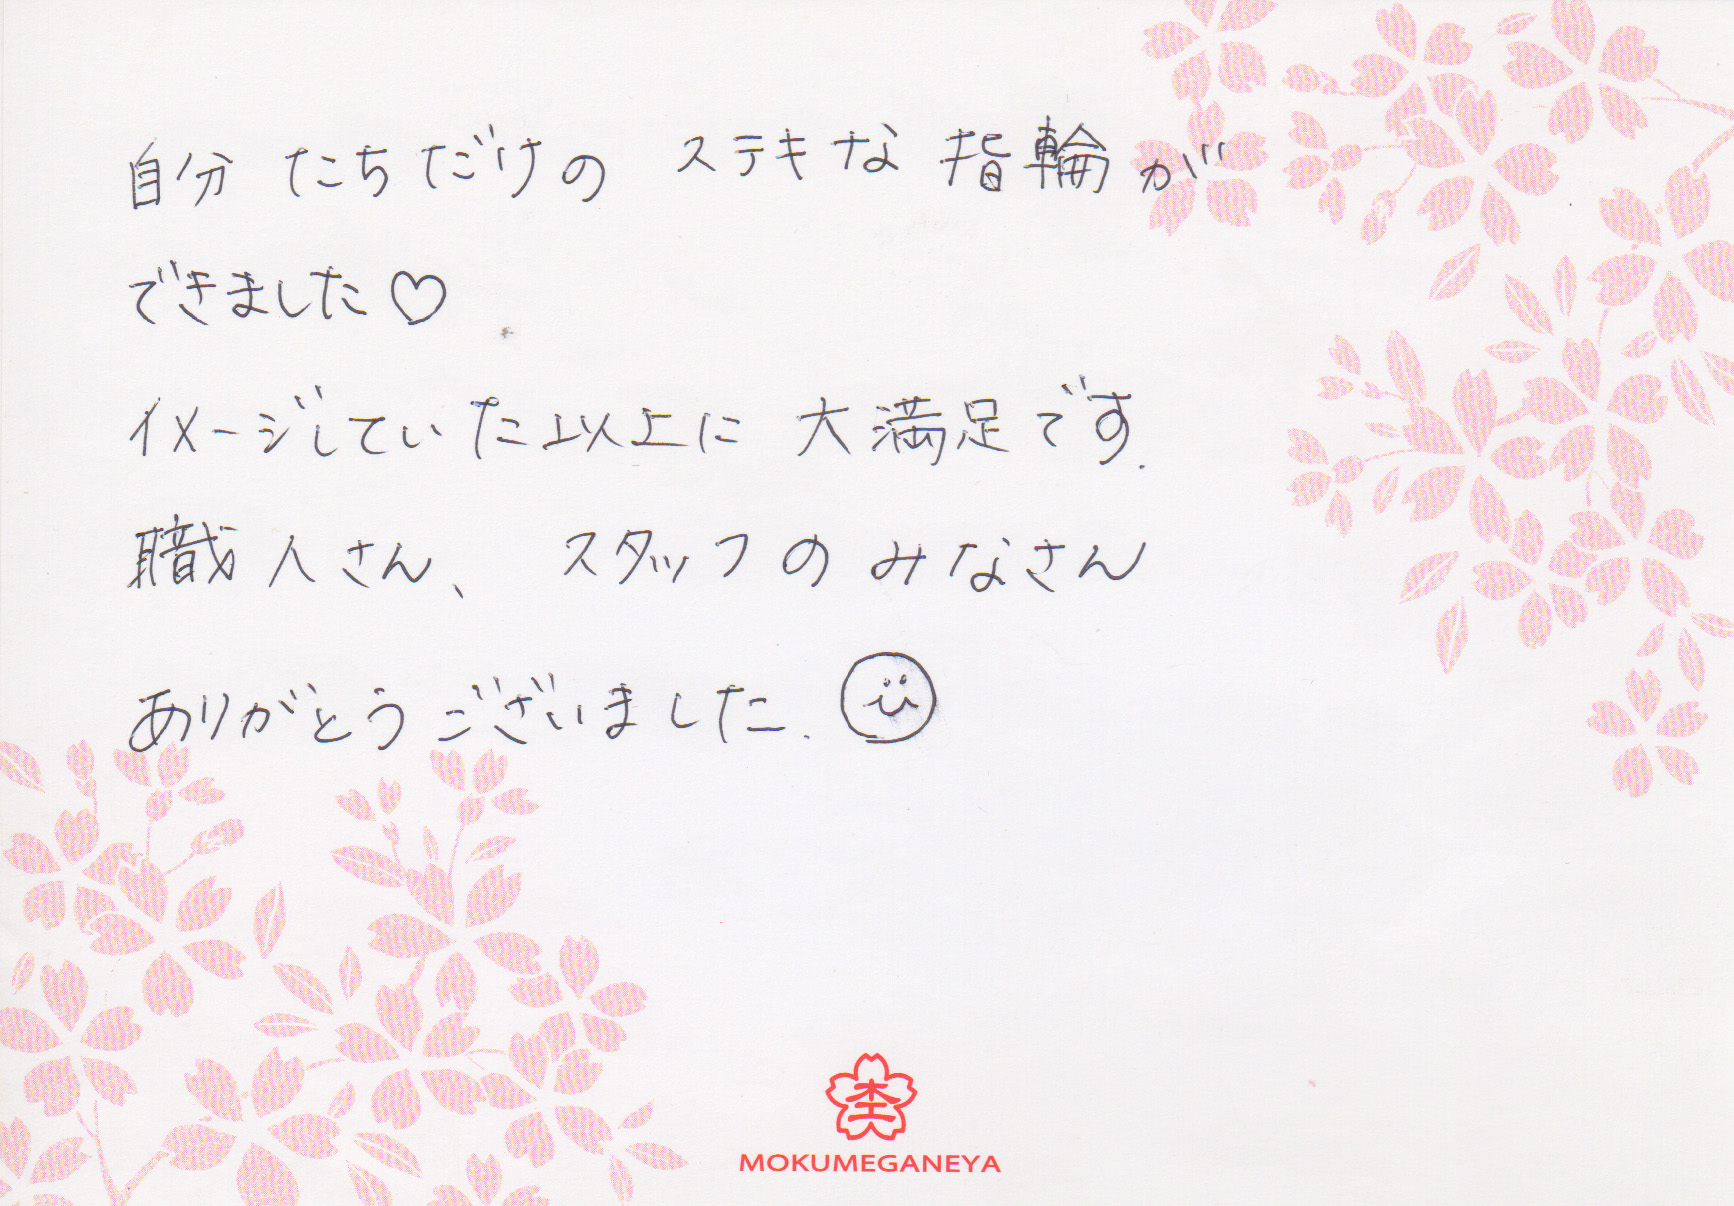 自分たちだけのステキな指輪が
できました♡
イメージしていた以上に大満足です.
職人さん、スタッフのみなさん
ありがとうございました.
MOKUMEGANEYA